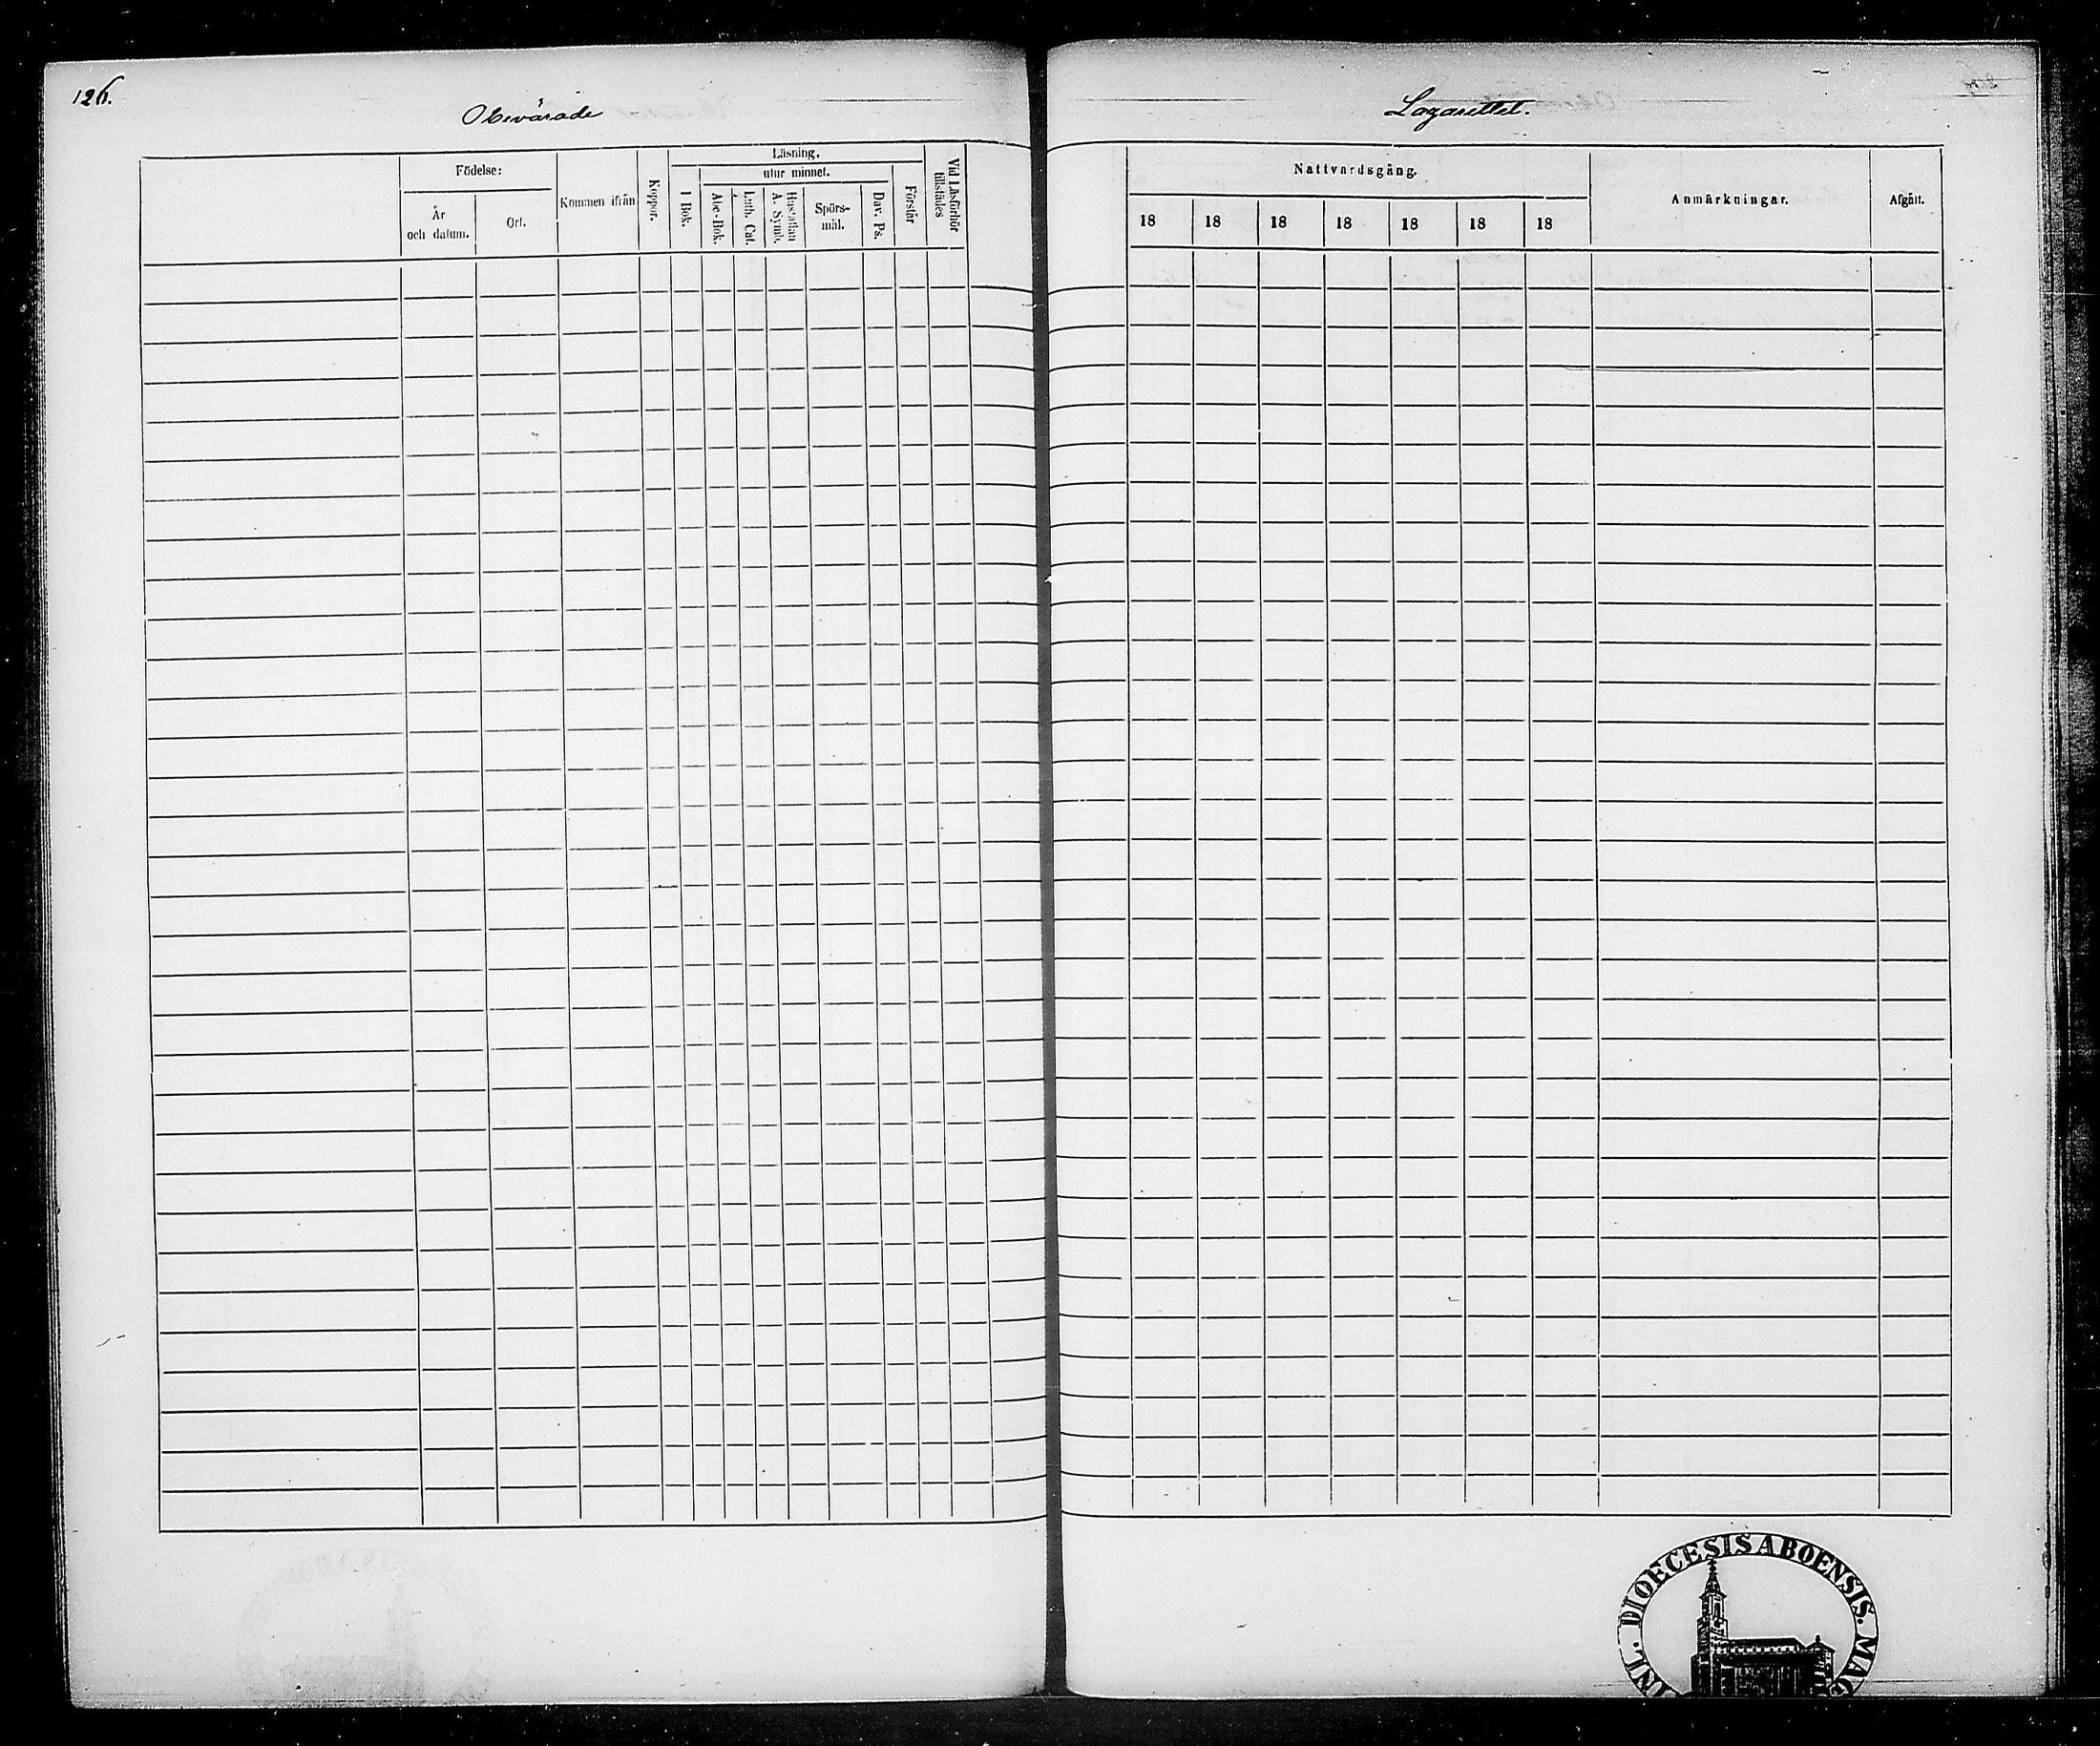 126.
Obevärade
Lazarettet.
Födelse:
År
och datum.
Ort.
Kommen ifrån
Koppor.
Läsning.
utur minnet.
I Bok.
Abc-Bok.
Luth. Cat.
Hustaflan
A. Symb.
Spörs-
mål.
Dav. Ps.
Förstår
Vid Läsförhör
tillstädes
Nattvardsgång.
18 18 18 18 18 18 18
Anmärkningar.
Afgått.
DIOECESIS ABOENSIS.